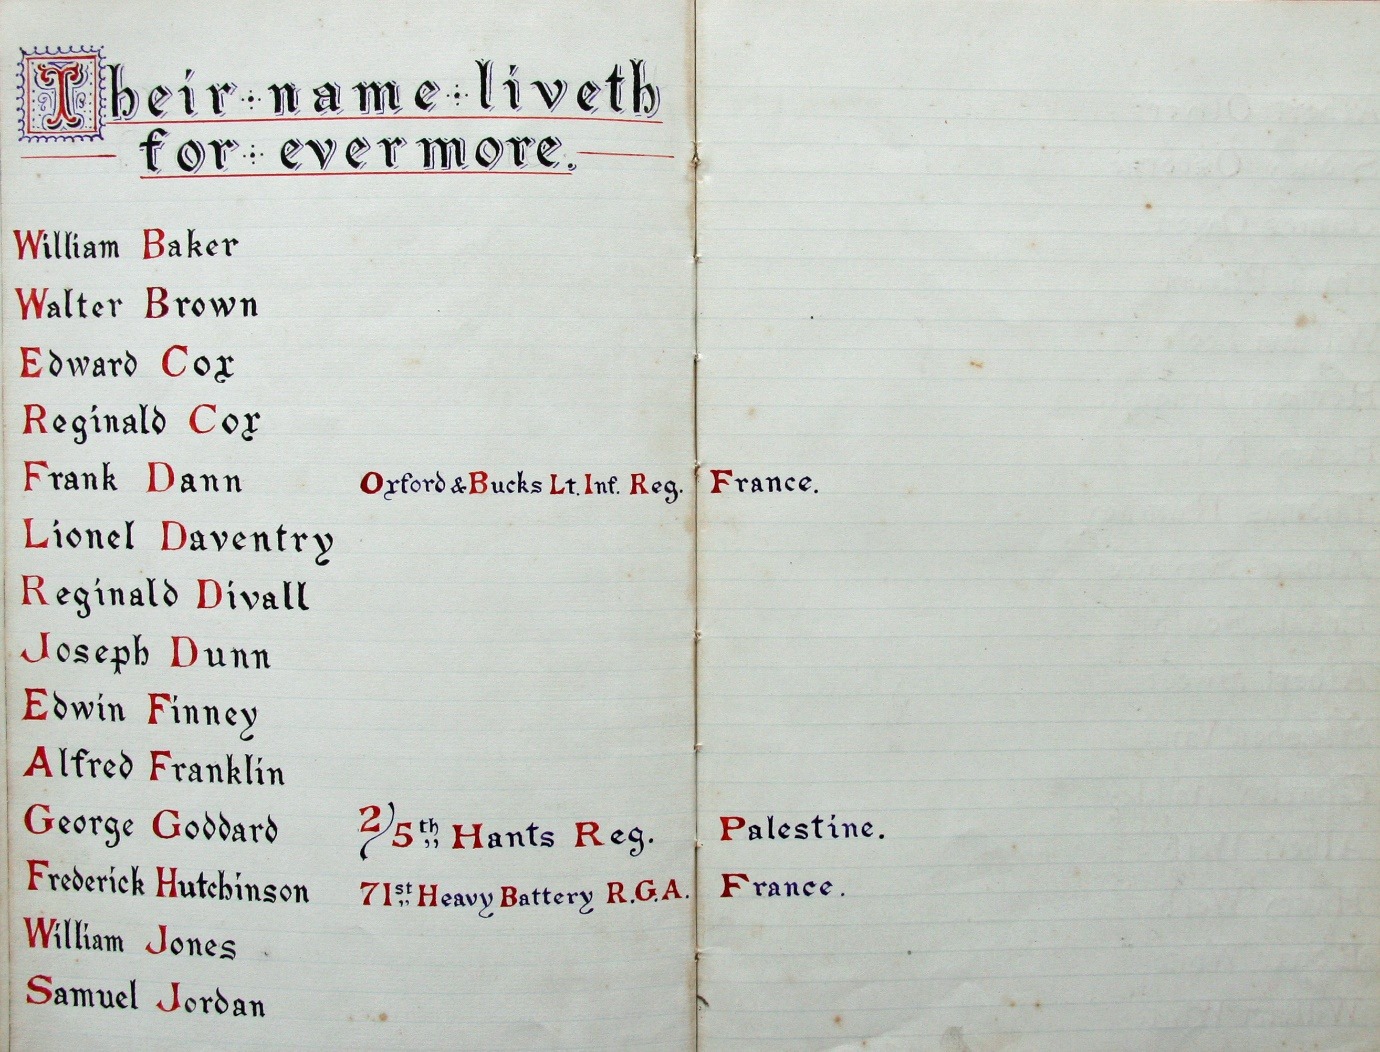 Their name liveth
for evermore.
William Baker
Walter Brown
Edward Cox
Reginald Cox
Frank Dann Oxford & Bucks Lt. Inf. Reg. France.
Lionel Daventry
Reginald Divall
Joseph Dunn
Edwin Finney
Alfred Franklin
George Goddard 2/5th Hants Reg. Palestine.
Frederick Hutchinson 71st Heavy Battery R.G.A. France.
William Jones
Samuel Jordan